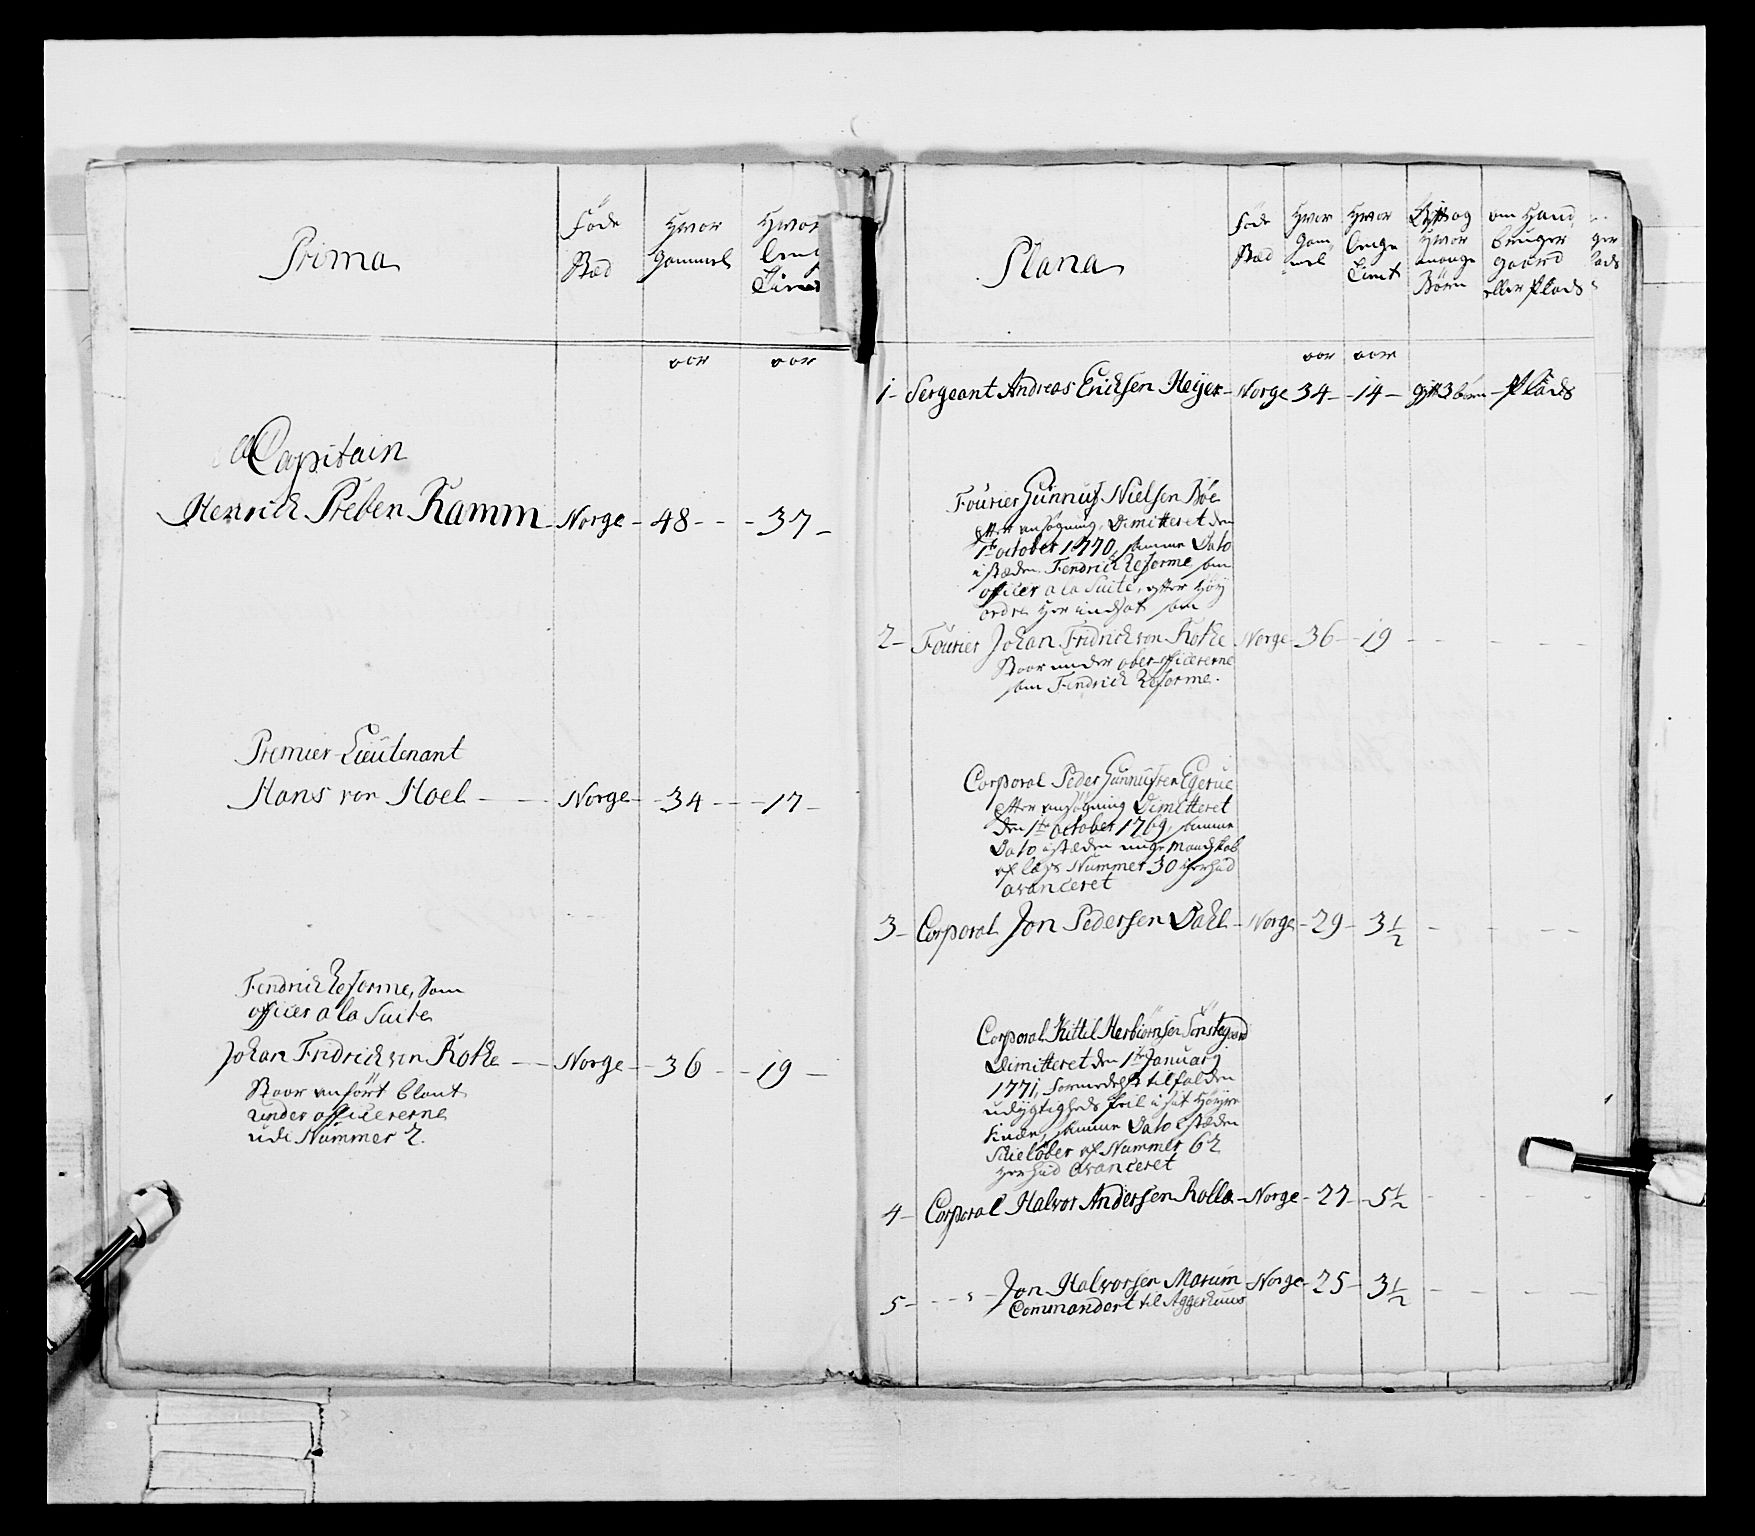 Prima
Føde Stæd
Hvor Gammel
Hvor lenge Tient
aar aar
Capitain
Henrich Preben Kamm - Norge - 48 - - - 37 -
Premier-Lieutenant
Hans von Hoel - - Norge - - 34 - - - 17 -
Fendrich Reforme, som
officer a la Suite
Johan Fridrich von Rothe - - Norge - - 36 - - 19 -
Staar anført blant
under officererne
udi Nummer 2.
Plana
Føde Stæd
Hvor Gammel
Hvor lenge Tient
Gift og Hvor mange Børn
om Hand bruger gaard eller Plads
aar aar
1 - Sergeant Andreas Erichsen Heyer - Norge 34 - - 14 - gift 3 børn - Plads
Fourier Gunnuf Nielsen Bøe
efter ansøgning, Dimitteret den
1te october 1770, samme Dato
i stæden Fendrich Reforme som
officer a la Suite, efter Høy
ordre Her indsat som
2 - Fourier Johan Fridrich von Rothe Norge 36 - - 19 - - - - -
Staar under ober-officererne
som Fendrich Reforme.
Corporal Peder Gunnufsen
efter ansøgning Dimitteret
den 1te october 1769, samme
Dato i stæden unge Mandskab
af lægs Nummer 30 iherhid
avanceret
3 - Corporal Jon Pedersen Dahl - Norge - 29 - 3 1/2 - - - -
Corporal Kittil Herbiørnsen
Dimitteret den 1te January
1771, formedelst tilfalden
udygtigheds feil i sit Høyre
samme Dato i stæden
Skieløber af Nummer 62
Herhid avanceret
4 - Corporal Halvor Andersen Rolla - Norge - 27 - 5 1/2 - - - -
5 - - - " - Jon Halvorsen Marum - Norge - 25 - 3 1/2 - - - -
Commandert til Aggerhuus